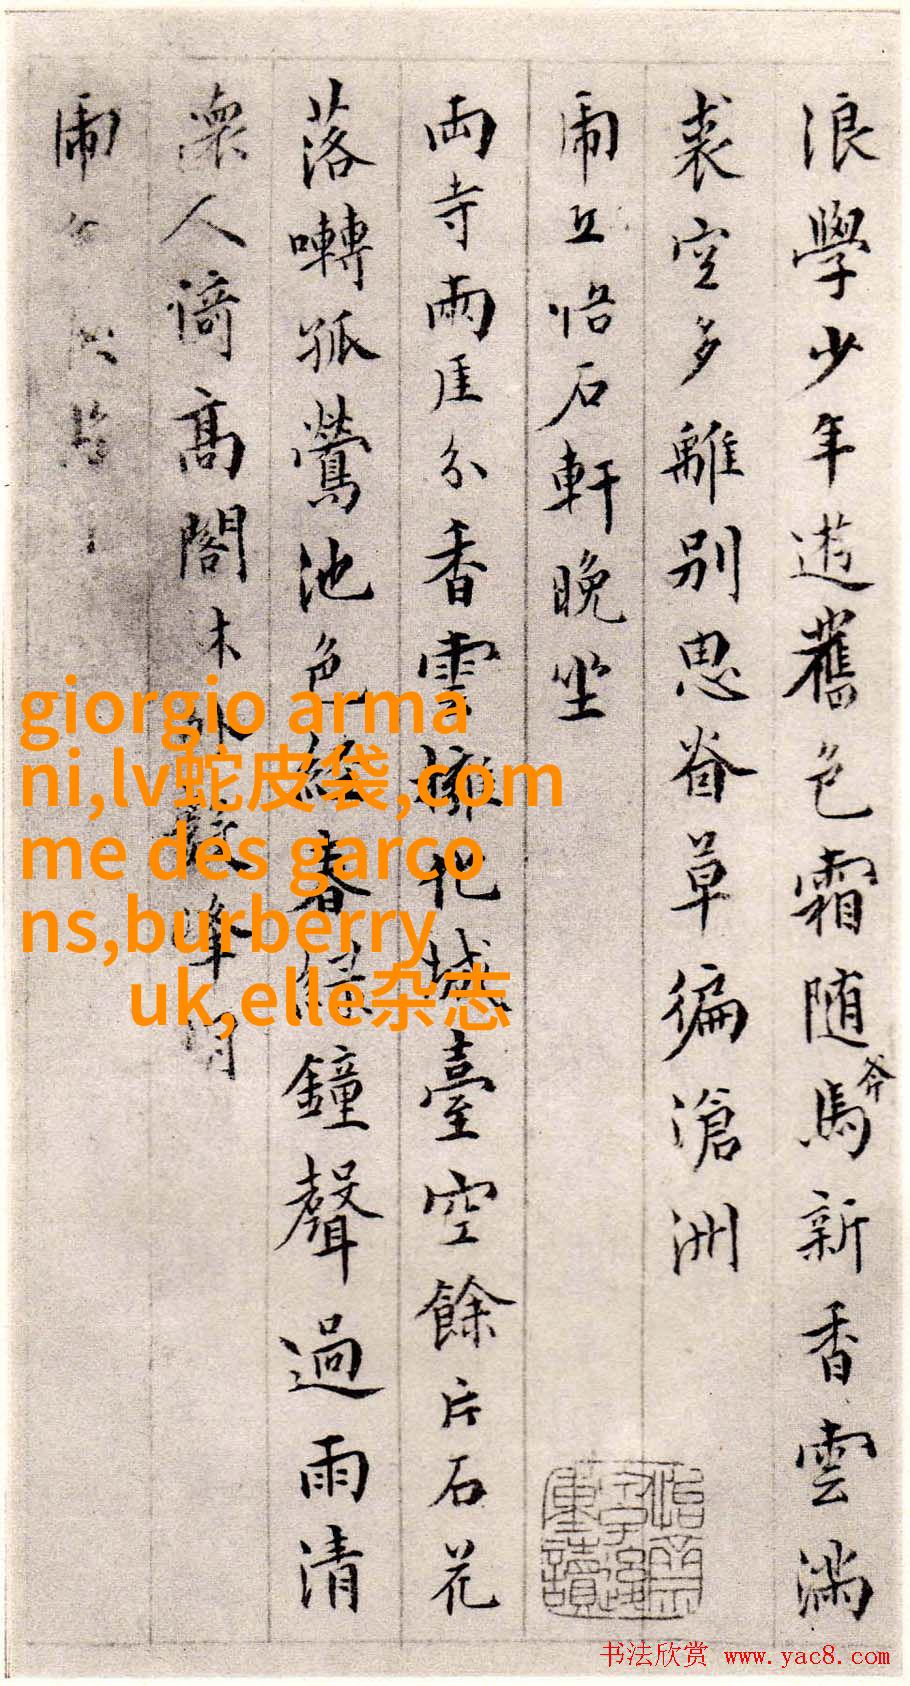 浪學少年遊舊色霜随馬新香雲滿
斧
裘空多離别思昏草徧滄洲
虎丘悟石軒晚坐
両寺兩厓分香雲擁化城臺空餘片石花
落囀孤鶯池色經春緑鐘聲過雨清
憑人倚高閣木外數峰明
虎
giorgio arma
ni,lv蛇皮袋,com
me des garco
ns,burberry
uk,elle杂志
书法欣赏 www.yac8.com